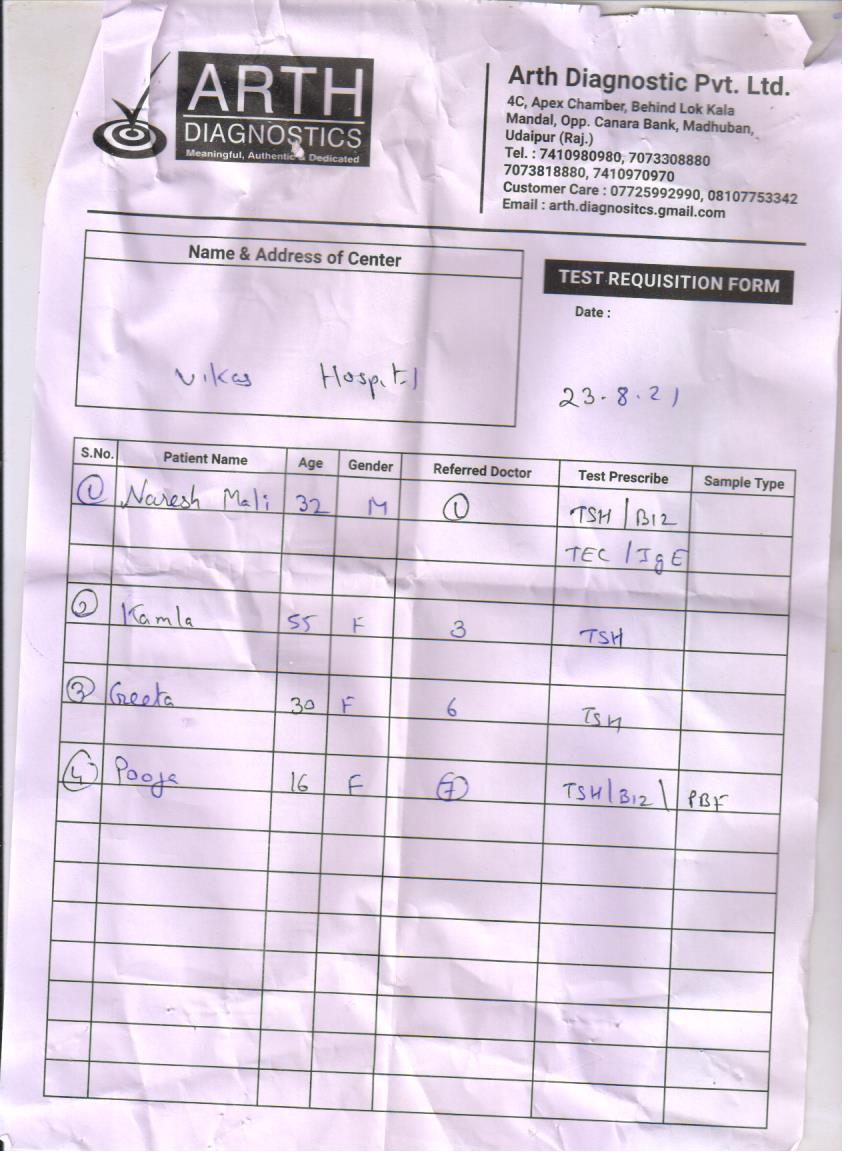 ARTH
DIAGNOSTICS
Meaningful, Authentic & Dedicated
Arth Diagnostic Pvt. Ltd.
4C, Apex Chamber, Behind Lok Kala
Mandal, Opp. Canara Bank, Madhuban,
Udaipur (Raj.)
Tel. : 7410980980, 7073308880
7073818880, 7410970970
Customer Care : 07725992990, 08107753342
Email : arth.diagnositcs.gmail.com
Name & Address of Center
Vikas Hospital
TEST REQUISITION FORM
Date :
23.8.21
S.No. Patient Name Age Gender Referred Doctor Test Prescribe Sample Type
1 Naresh Mali 32 M 1 TSH/B12
TEC/IgE
2 Kamla 55 F 3 TSH
3 Geeta 30 F 6 TSH
4 Pooja 16 F 7 TSH/B12\ PBF